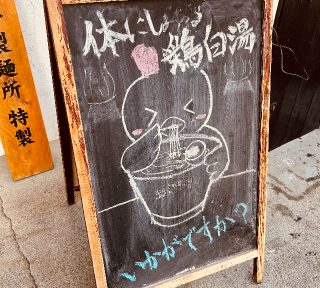 製麺所 特製
体にしみる
鶏白湯
いかがですか?